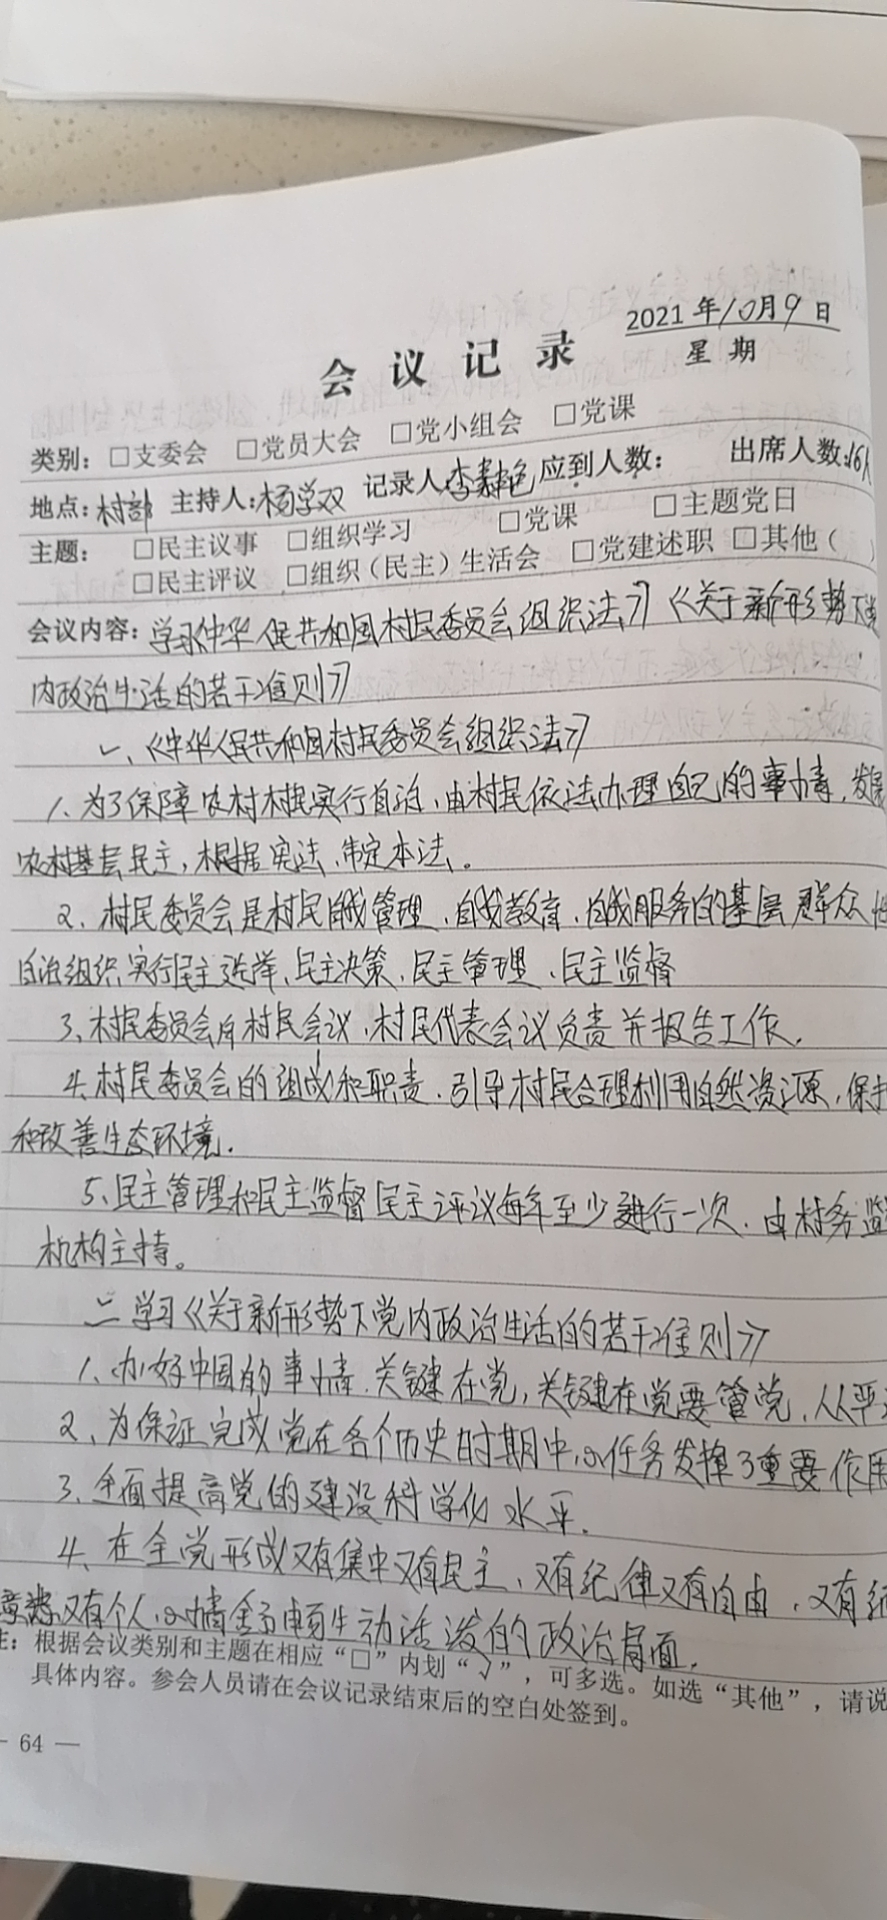 2021年10月9日
会议记录
星期
类别：□支委会 □党员大会 □党小组会 □党课
地点：村部 主持人：杨学双 记录人 应到人数： 出席人数：16人
主题： □民主议事 □组织学习 □党课 □主题党日
□民主评议 □组织（民主）生活会 □党建述职 □其他（ ）
会议内容：学习《中华人民共和国村民委员会组织法》《关于新形势下党
内政治生活的若干准则》
一、《中华人民共和国村民委员会组织法》
1、为了保障农村村民实行自治，由村民依法办理自己的事情，发展
农村基层民主，根据宪法，制定本法。
2、村民委员会是村民自我管理、自我教育、自我服务的基层群众性
自治组织，实行民主选举、民主决策、民主管理、民主监督
3、村民委员会向村民会议、村民代表会议负责并报告工作.
4、村民委员会的组成和职责，引导村民合理利用自然资源，保护
和改善生态环境.
5、民主管理和民主监督民主评议每年至少进行一次，由村务监
机构主持。
二 学习《关于新形势下党内政治生活的若干准则》
1、办好中国的事情，关键在党，关键在党要管党，从严
2、为保证完成党在各个历史时期中心任务发挥了重要作用
3、全面提高党的建设科学化水平.
4、在全党形成又有集中又有民主，又有纪律又有自由，又有统
意志又有个人心情舒畅生动活泼的政治局面.
注：根据会议类别和主题在相应“□”内划“√”，可多选。如选“其他”，请说
具体内容。参会人员请在会议记录结束后的空白处签到。
— 64 —